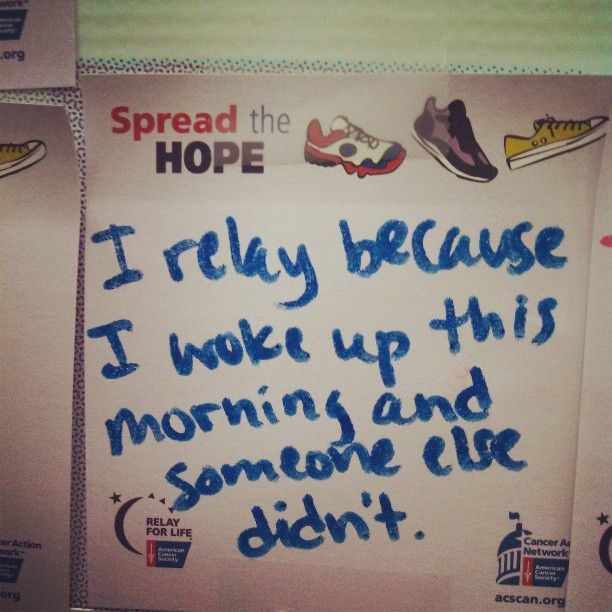 .org
Spread the
HOPE
I relay because
I woke up this
morning and
someone else
didn't.
RELAY
FOR LIFE
American
Cancer
Society
Cancer Ac
Network
American
Cancer
Society
acscan.org
er Action
work
org